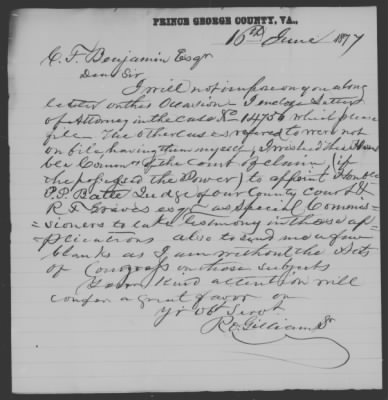 PRINCE GEORGE COUNTY, VA.,
16th June 1877
C. F. Benjamin Esqr
Dear Sir
I will not impose on you a long
letter on this Occasion I enclose Letter
of Attorney in the case No 14756 which please
file. The other cases refered to were not
on file, having them myself. I wished the Honora
ble Commrs of the Court of Claims (if
they possess the Power) to appoint Honble
P. P. Batte Judge of our County Court &
R. F. Graves esqr as special Commis
=sioners to take testimony in these ap
=plications also to send me a few
blanks as I am without the Acts
of Congress on those subjects
Your kind attention will
confer a great favor on
Yr Obt Servt
R. E. Gilliam Sr